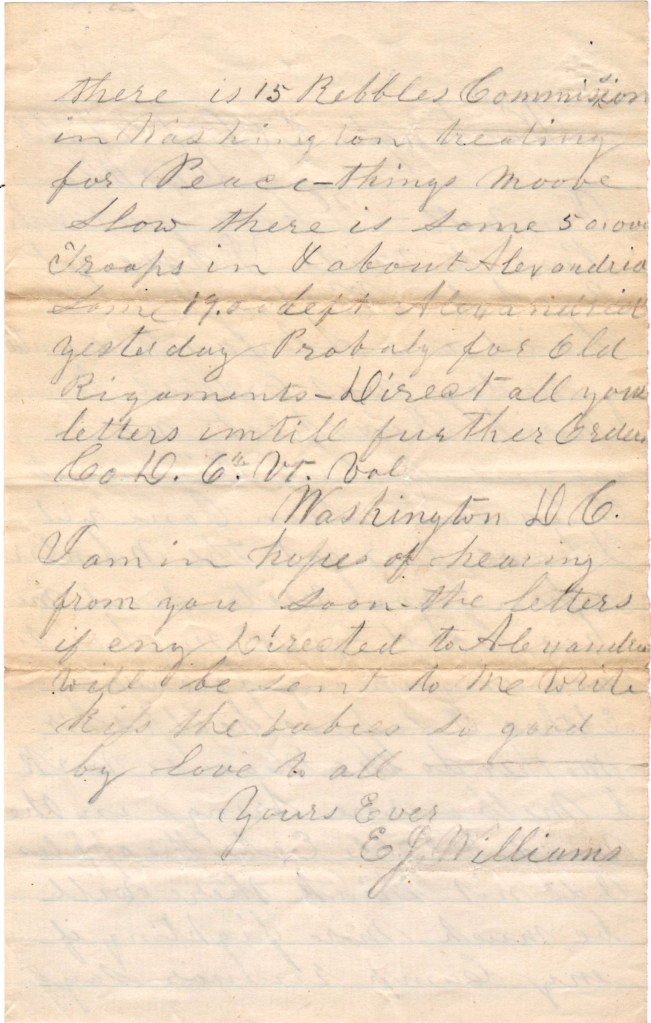 there is 15 Rebbles Commission
in Washington treating
for Peace - things moove
Slow there is some 50,000
Troops in & about Alexandria
Some left Alexandria
yesterday Probaly for Old
Rigaments - Direct all your
letters untill further Orders
Co D. 6th. Vt. Vol
Washington D C.
I am in hopes of hearing
from you soon - the letters
if eny Directed to Alexandria
will be sent to me write
kiss the babies so good
by love to all
Yours Ever
E J. Williams